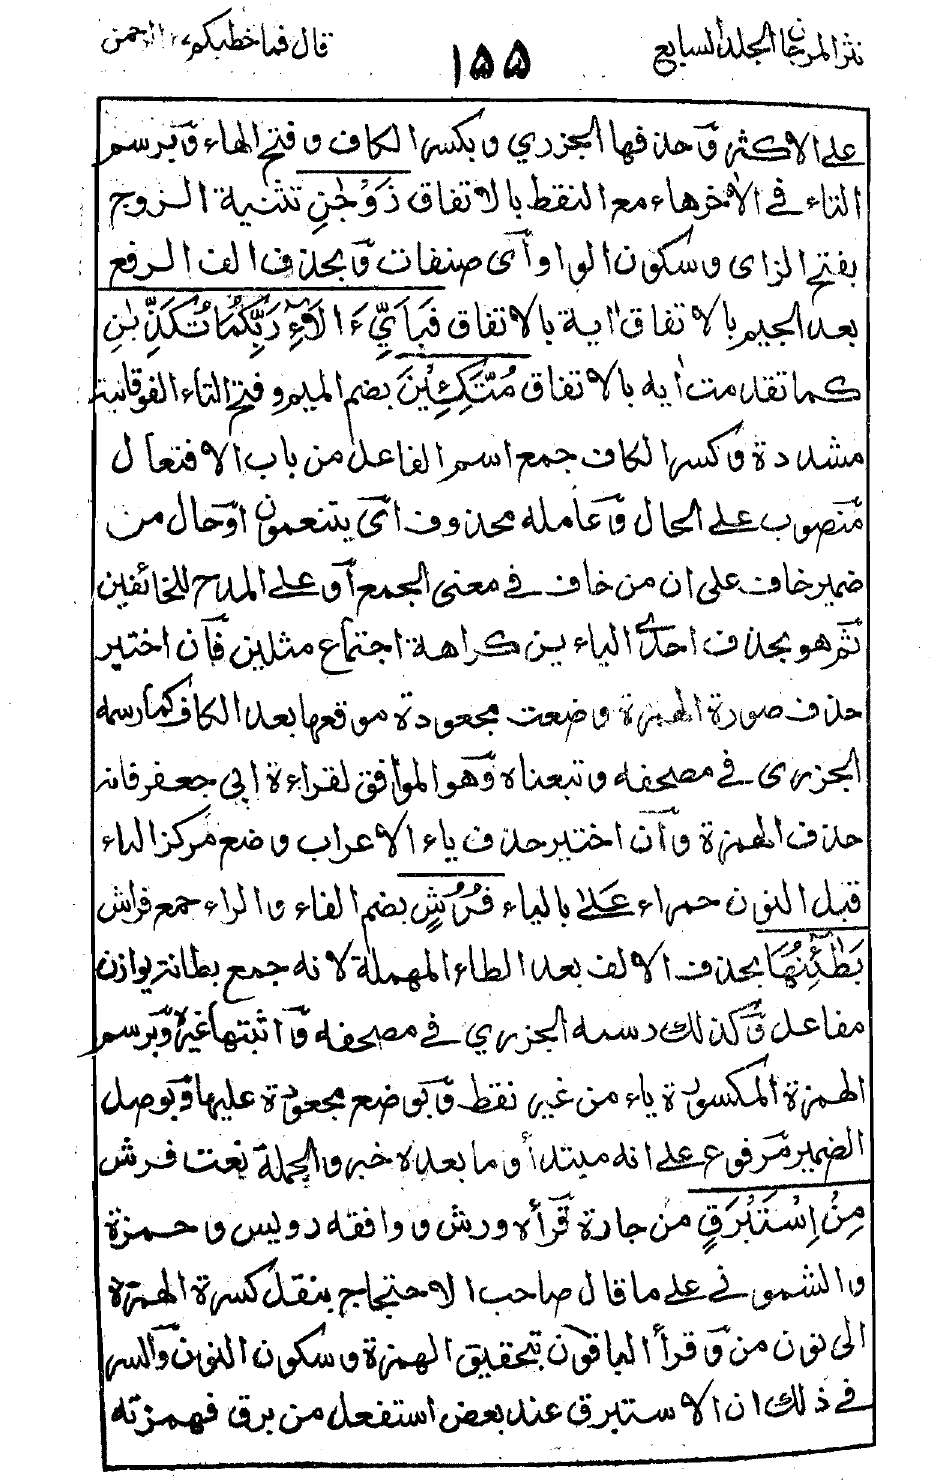 نثر المرجان المجلد السابع
١٥٥
قال فما خطبكم ٢٧ الرحمن
على الاكثر وحذفها الجزري وبكسر الكاف وفتح الهاء وبرسم
التاء في الأخر هاء مع النقط بالاتفاق زَوْجٰنِ تثنية الزوج
بفتح الزاى وسكون الواو اى صنفات وبحذف الف الرفع
بعد الجيم بالاتفاق اية بالاتفاق فَبِاَيِّ ءَالَاۤءِ رَبِّكُمَا تُكَذِّبٰنِ
كما تقدمت أيه بالاتفاق مُتَّكِـِٕيْنَ بضم الميم وفتح التاء الفوقانية
مشددة وكسر الكاف جمع اسم الفاعل من باب الافتعال
منصوب على الحال وعامله محذوف اى يتنعمون او حال من
ضمير خاف على ان من خاف في معنى الجمع او على المدح للخائفين
ثم هو بحذف احدى الياءين كراهة اجتماع مثلين فان اختير
حذف صورة الهمزة وضعت مجعودة موقعها بعد الكاف كما رسمه
الجزرى في مصحفه وتبعناه وهو الموافق لقراءة ابي جعفر فانه
حذف الهمزة وان اختير حذف ياء الاعراب وضع مركز الياء
قبل النون حمراء عَلٰى بالياء فُرُشٍ بضم الفاء والراء جمع فراش
بَطَاۤئِنُهَا بحذف الالف بعد الطاء المهملة لانه جمع بطانة يوازن
مفاعل وكذلك رسمه الجزري في مصحفه واثبتها غيره وبرسم
الهمزة المكسورة ياء من غير نقط وبوضع مجعودة عليها وبوصل
الضمير مرفوع على انه مبتدأ وما بعده خبر والجملة نعت فرش
مِنْ اِسْتَبْرَقٍ من جارة قرأه ورش ووافقه رويس وحمزة
والشموني على ما قال صاحب الاحتجاج بنقل كسرة الهمزة
الى نون من وقرأ الباقون بتحقيق الهمزة وسكون النون والسر
في ذلك ان الاستبرق عند بعض استفعل من برق فهمزته